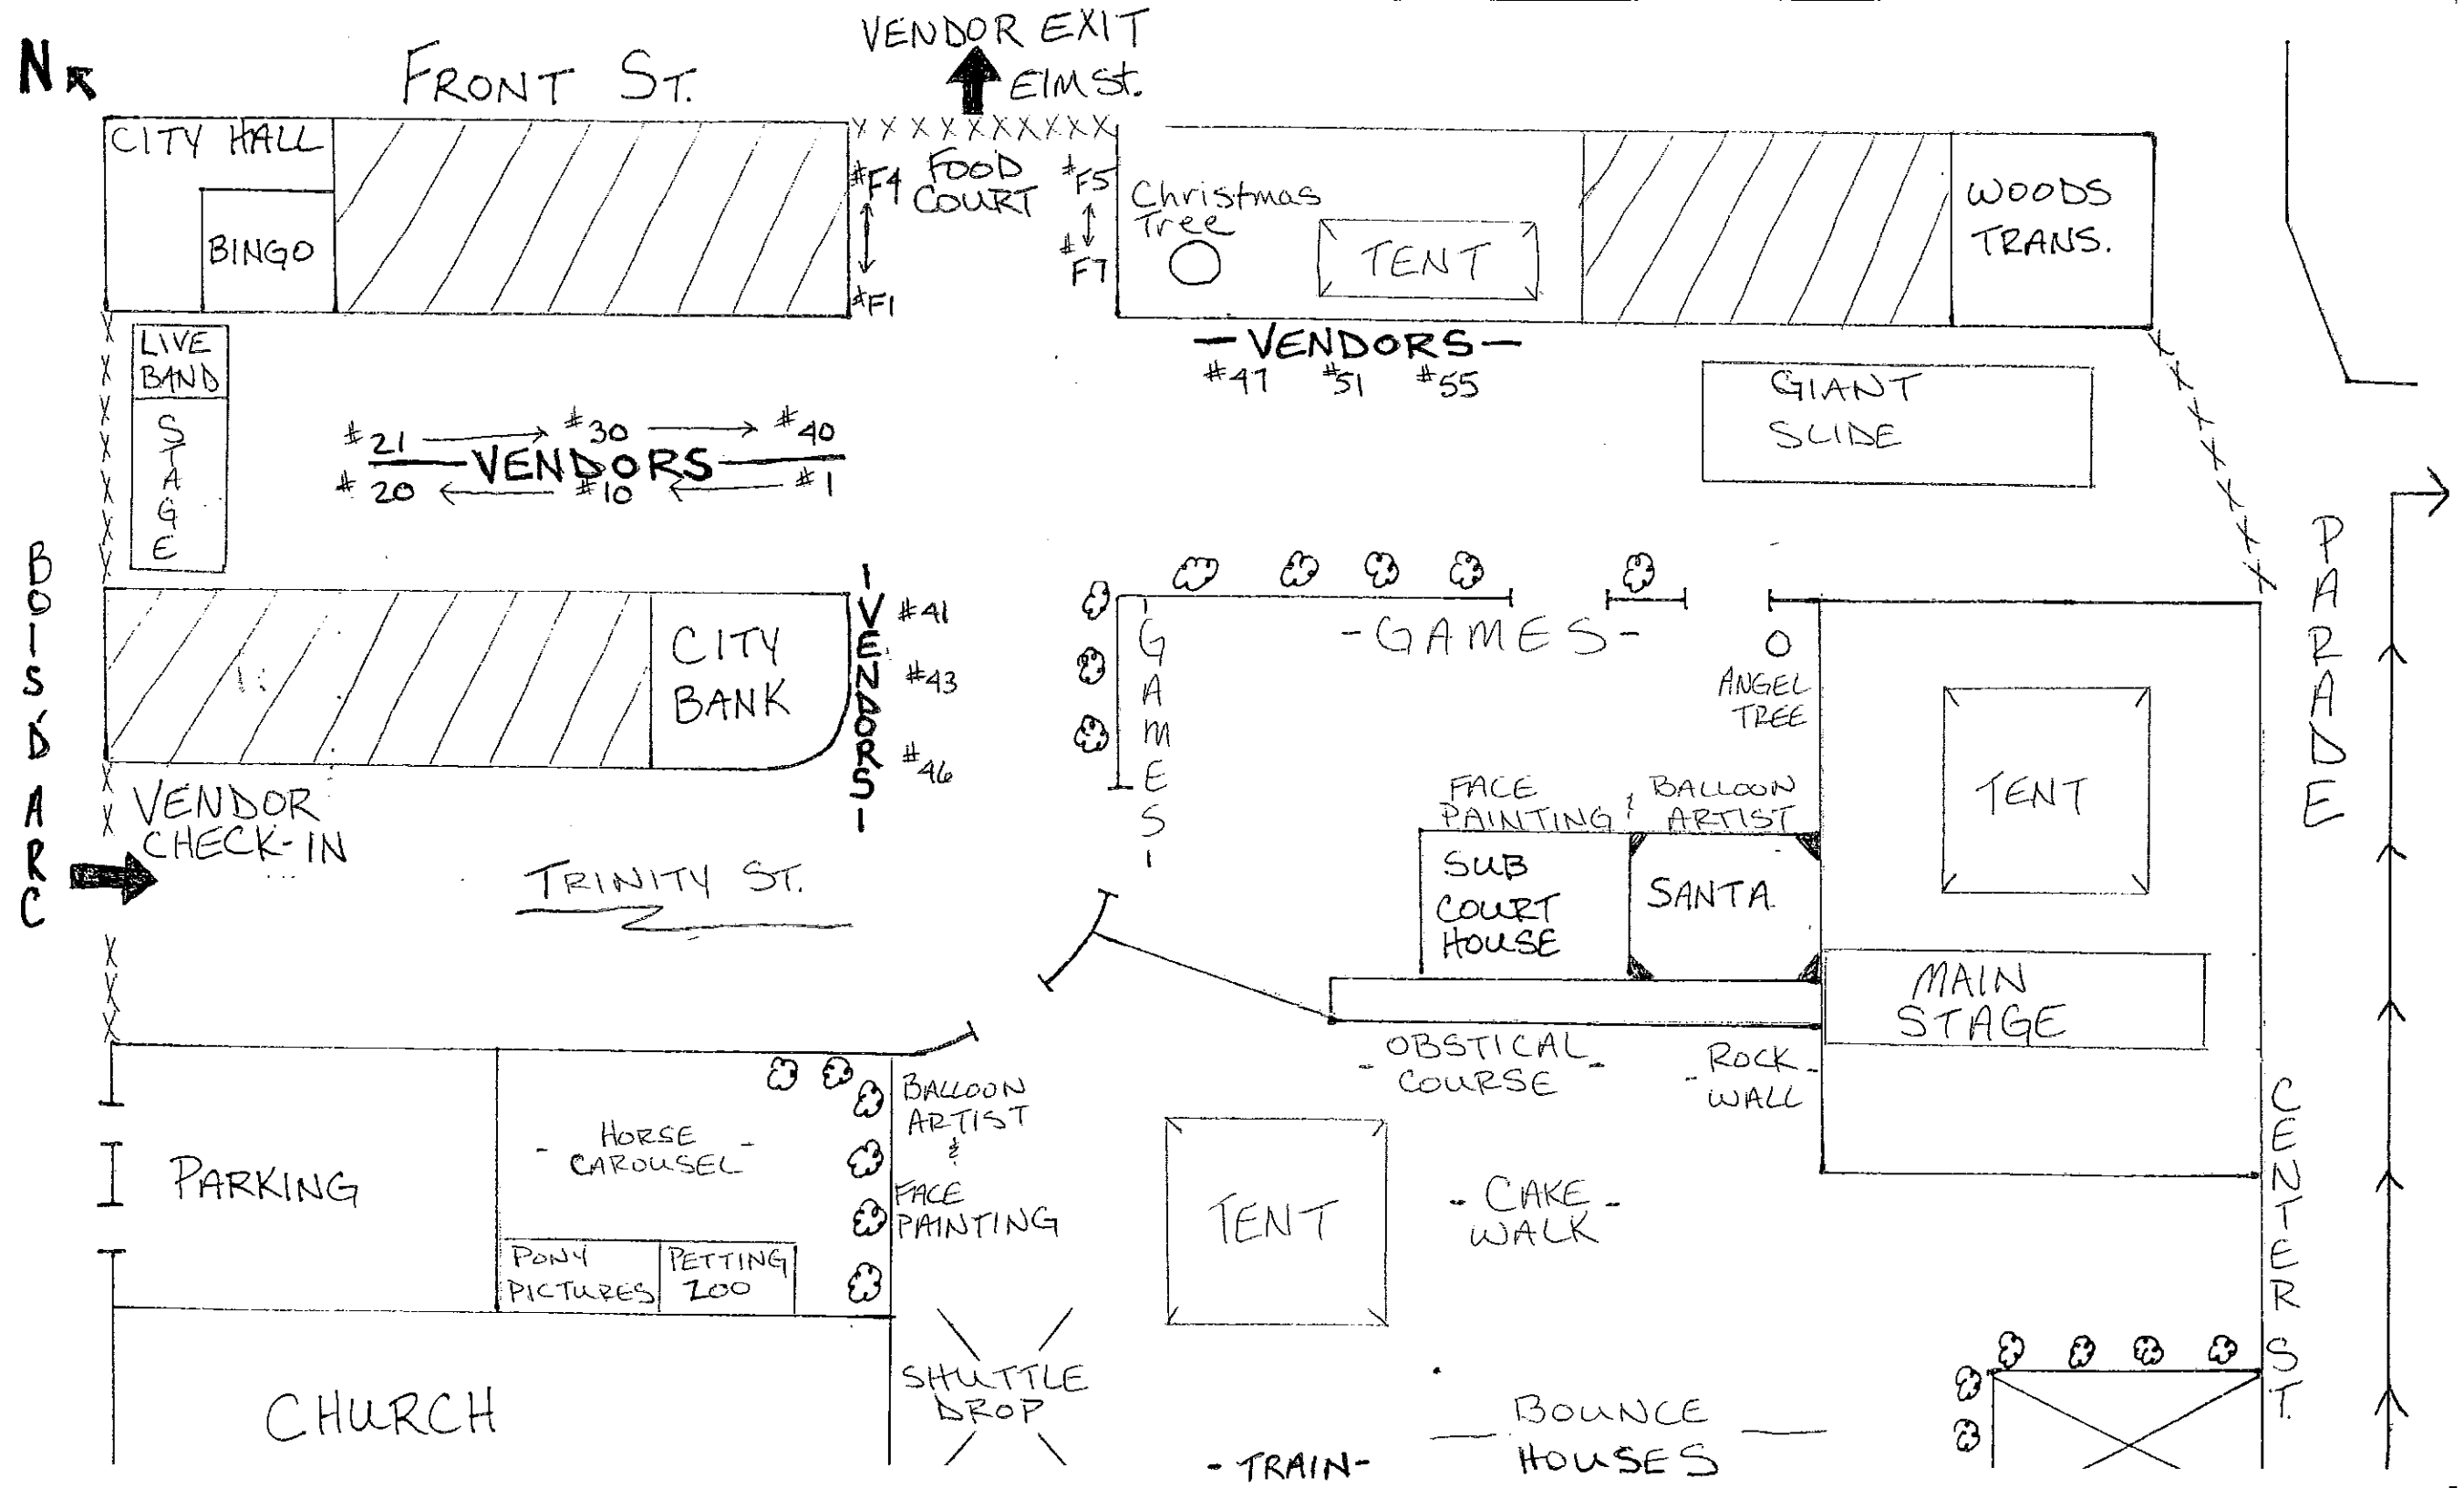 VENDOR EXIT
N
FRONT ST.
Elm St.
CITY HALL
BINGO
X X X X X X X X X
#F4
FOOD
COURT
#F5
#F7
#F1
Christmas
Tree
TENT
WOODS
TRANS.
LIVE
BAND
STAGE
-VENDORS-
#47 #51 #55
GIANT
SLIDE
#21 #30 #40
VENDORS
#20 #10 #1
BOIS D'ARC
CITY
BANK
-VENDORS-
#41
#43
#46
-GAMES-
-GAMES-
ANGEL
TREE
TENT
PARADE
VENDOR
CHECK-IN
TRINITY ST.
FACE
PAINTING
&
BALLOON
ARTIST
SUB
COURT
HOUSE
SANTA
MAIN
STAGE
- OBSTICAL
COURSE -
- ROCK -
WALL
PARKING
- HORSE -
CAROUSEL
PONY
PICTURES
PETTING
ZOO
BALLOON
ARTIST
&
FACE
PAINTING
TENT
- CAKE -
WALK
CENTER ST.
CHURCH
SHUTTLE
DROP
- TRAIN -
BOUNCE
HOUSES